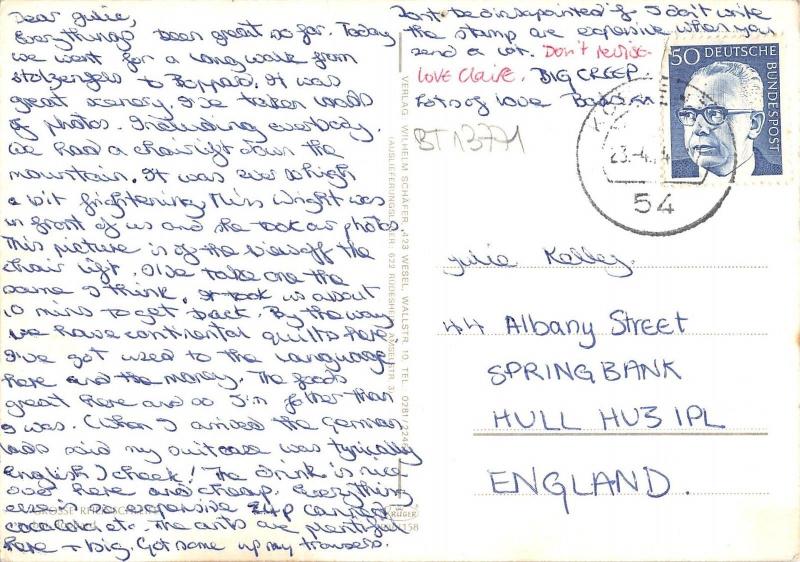 Dear Julie,
Everythings been great so far. Today
we went for a long walk from
Stolzenfels to Boppard. It was
great scenery. I've taken loads
of photos. Including everybody.
We had a chairlift down the
mountain. It was ever so high
a bit frightening. Miss Wright was
in front of us and she took our photos.
This picture is of the view off the
chair lift. I've take one the
same I think. It took us about
10 mins to get back. By the way
we have continental quilts here.
I've got used to the language
here and the money. The foods
great here and so I'm fatter than
I was. (When I arrived the German
lads said my suitcase was typically
English) cheek! The drink is nice
over here and cheap. Everything
else is expensive 24p can of
cocacola etc. The ants are plentiful
here + big. Got some up my trousers.
Dont be dissapointed if I don't write
the stamp are expensive when you
send a lot. Don't revise
Love Claire. BIG CREEP
Lots of love
BT13771
50 DEUTSCHE BUNDESPOST
23.-4.
54
VERLAG WILHELM SCHÄFER, 423 WESEL, WALLSTR. 10, TEL. 0281/
(AUSLIEFERUNGSLAGER: 622 RÜDESHEIM,
KRÜGER
158
Julie Kelley.
44 Albany Street
SPRINGBANK
HULL HU3 1PL
ENGLAND.